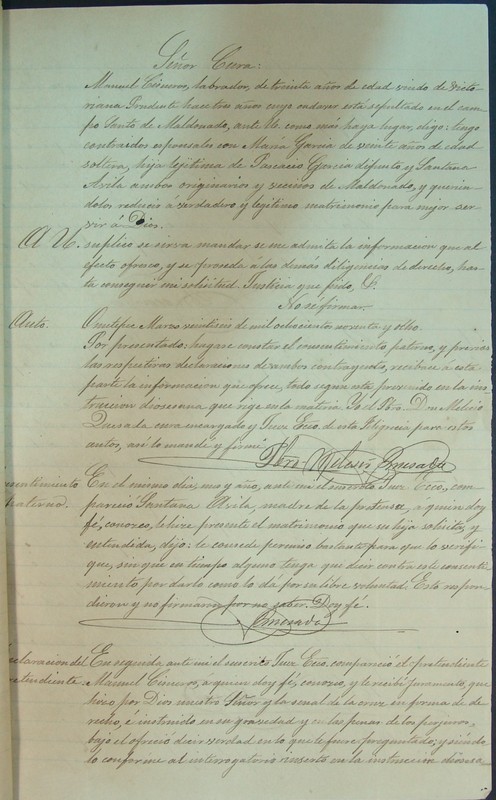 Señor Cura:
Manuel Cisneros, labrador, de treinta años de edad viudo de Victo-
riana Prudente hace tres años cuyo cadaver está sepultado en el cam-
po Santo de Maldonado, ante U. como más haya lugar, digo: tengo
contraidos esponsales con María García de veinte años de edad
soltera, hija lejitima de Pascacio García defunto y Santana
Avila ambos originarios y vecinos de Maldonado, y querien-
dolos reducir a verdadero y lejitimo matrimonio para mejor ser-
vir á Dios.
A U. suplico se sirva mandar se me admita la informacion que al
efecto ofresco, y se proceda á las demás diligencias de derecho, has-
ta conseguir mi solicitud. Justicia que pido, &.
No sé firmar.
Auto. Ometepec Marzo veintiseis de mil ochocientos noventa y ocho.
Por presentado: hagase constar el consentimiento paterno, y previas
las respectivas declaraciones de ambos contrayentes, recibase a esta
parte la informacion que ofrece, todo segun está prevenido en la ins-
truccion diosesana que rige en la materia. Yo el Pbro. Don Melesio
Quesada cura encargado y Juez Ecco de esta feligrecia para estos
autos, así lo mandé y firmé.
Pbro Melesio Quesada
nsentimiento En el mismo dia, mes y año, ante mi el mismo Juez Ecco, com-
paterno. pareció Santana Avila, madre de la pretensa, a quien doy
fé, conozco, le hize presente el matrimonio que su hija solicita, y
entendida, dijo: le concede permiso bastante para que lo verifi-
que, sin que en tiempo alguno tenga que decir contra este consenti-
miento por darlo como lo dá por su libre voluntad. Esto respon-
dieron y no firmaron por no saber. Doy fé.
Quesada
claracion del En seguida ante mi el suscrito Juez Ecco, compareció el pretendiente
retendiente Manuel Cisneros, a quien doy fé, conozco, y le recibí juramento, que
hizo por Dios nuestro Señor y la señal de la cruz en forma de de-
recho, é instruido en su gravedad y en las penas de los perjuros,
bajo el ofreció decir verdad en lo que le fuere preguntado; y siendo-
lo conforme al interrogatorio inserto en la instruccion diosesa-